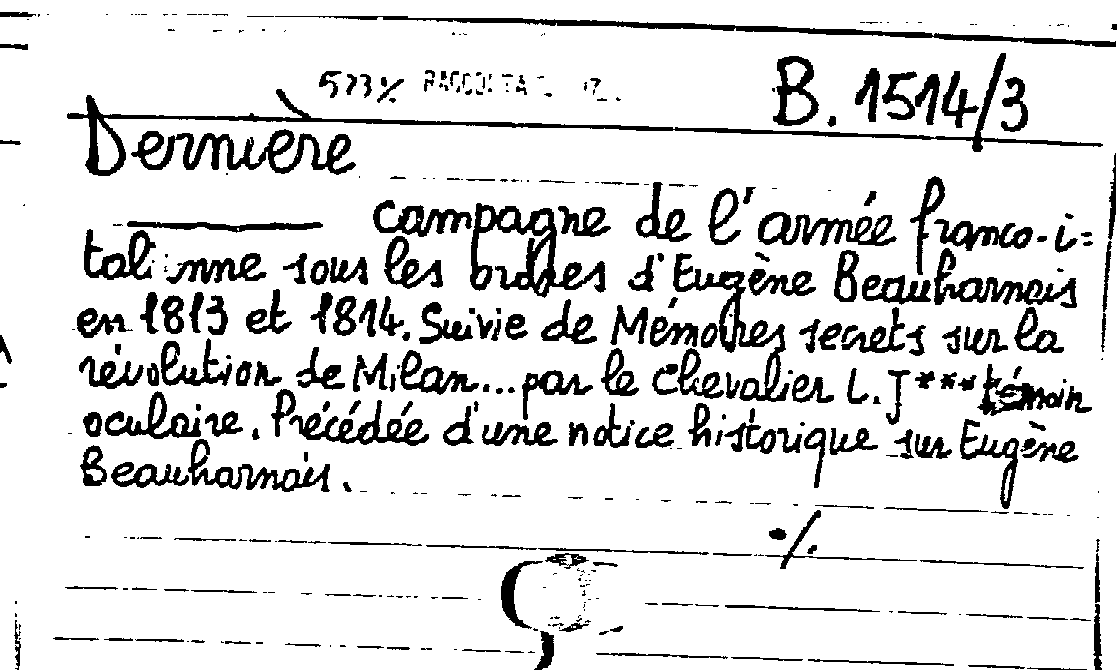 573% RACCOLTA B. 1514/3
Dernière
campagne de l'armée franco-i=
talienne sous les ordres d'Eugène Beauharnais
en 1813 et 1814. Suivie de Mémoires secrets sur la
révolution de Milan... par le chevalier L. J*** témoin
oculaire. Précédée d'une notice historique sur Eugène
Beauharnais.
./.